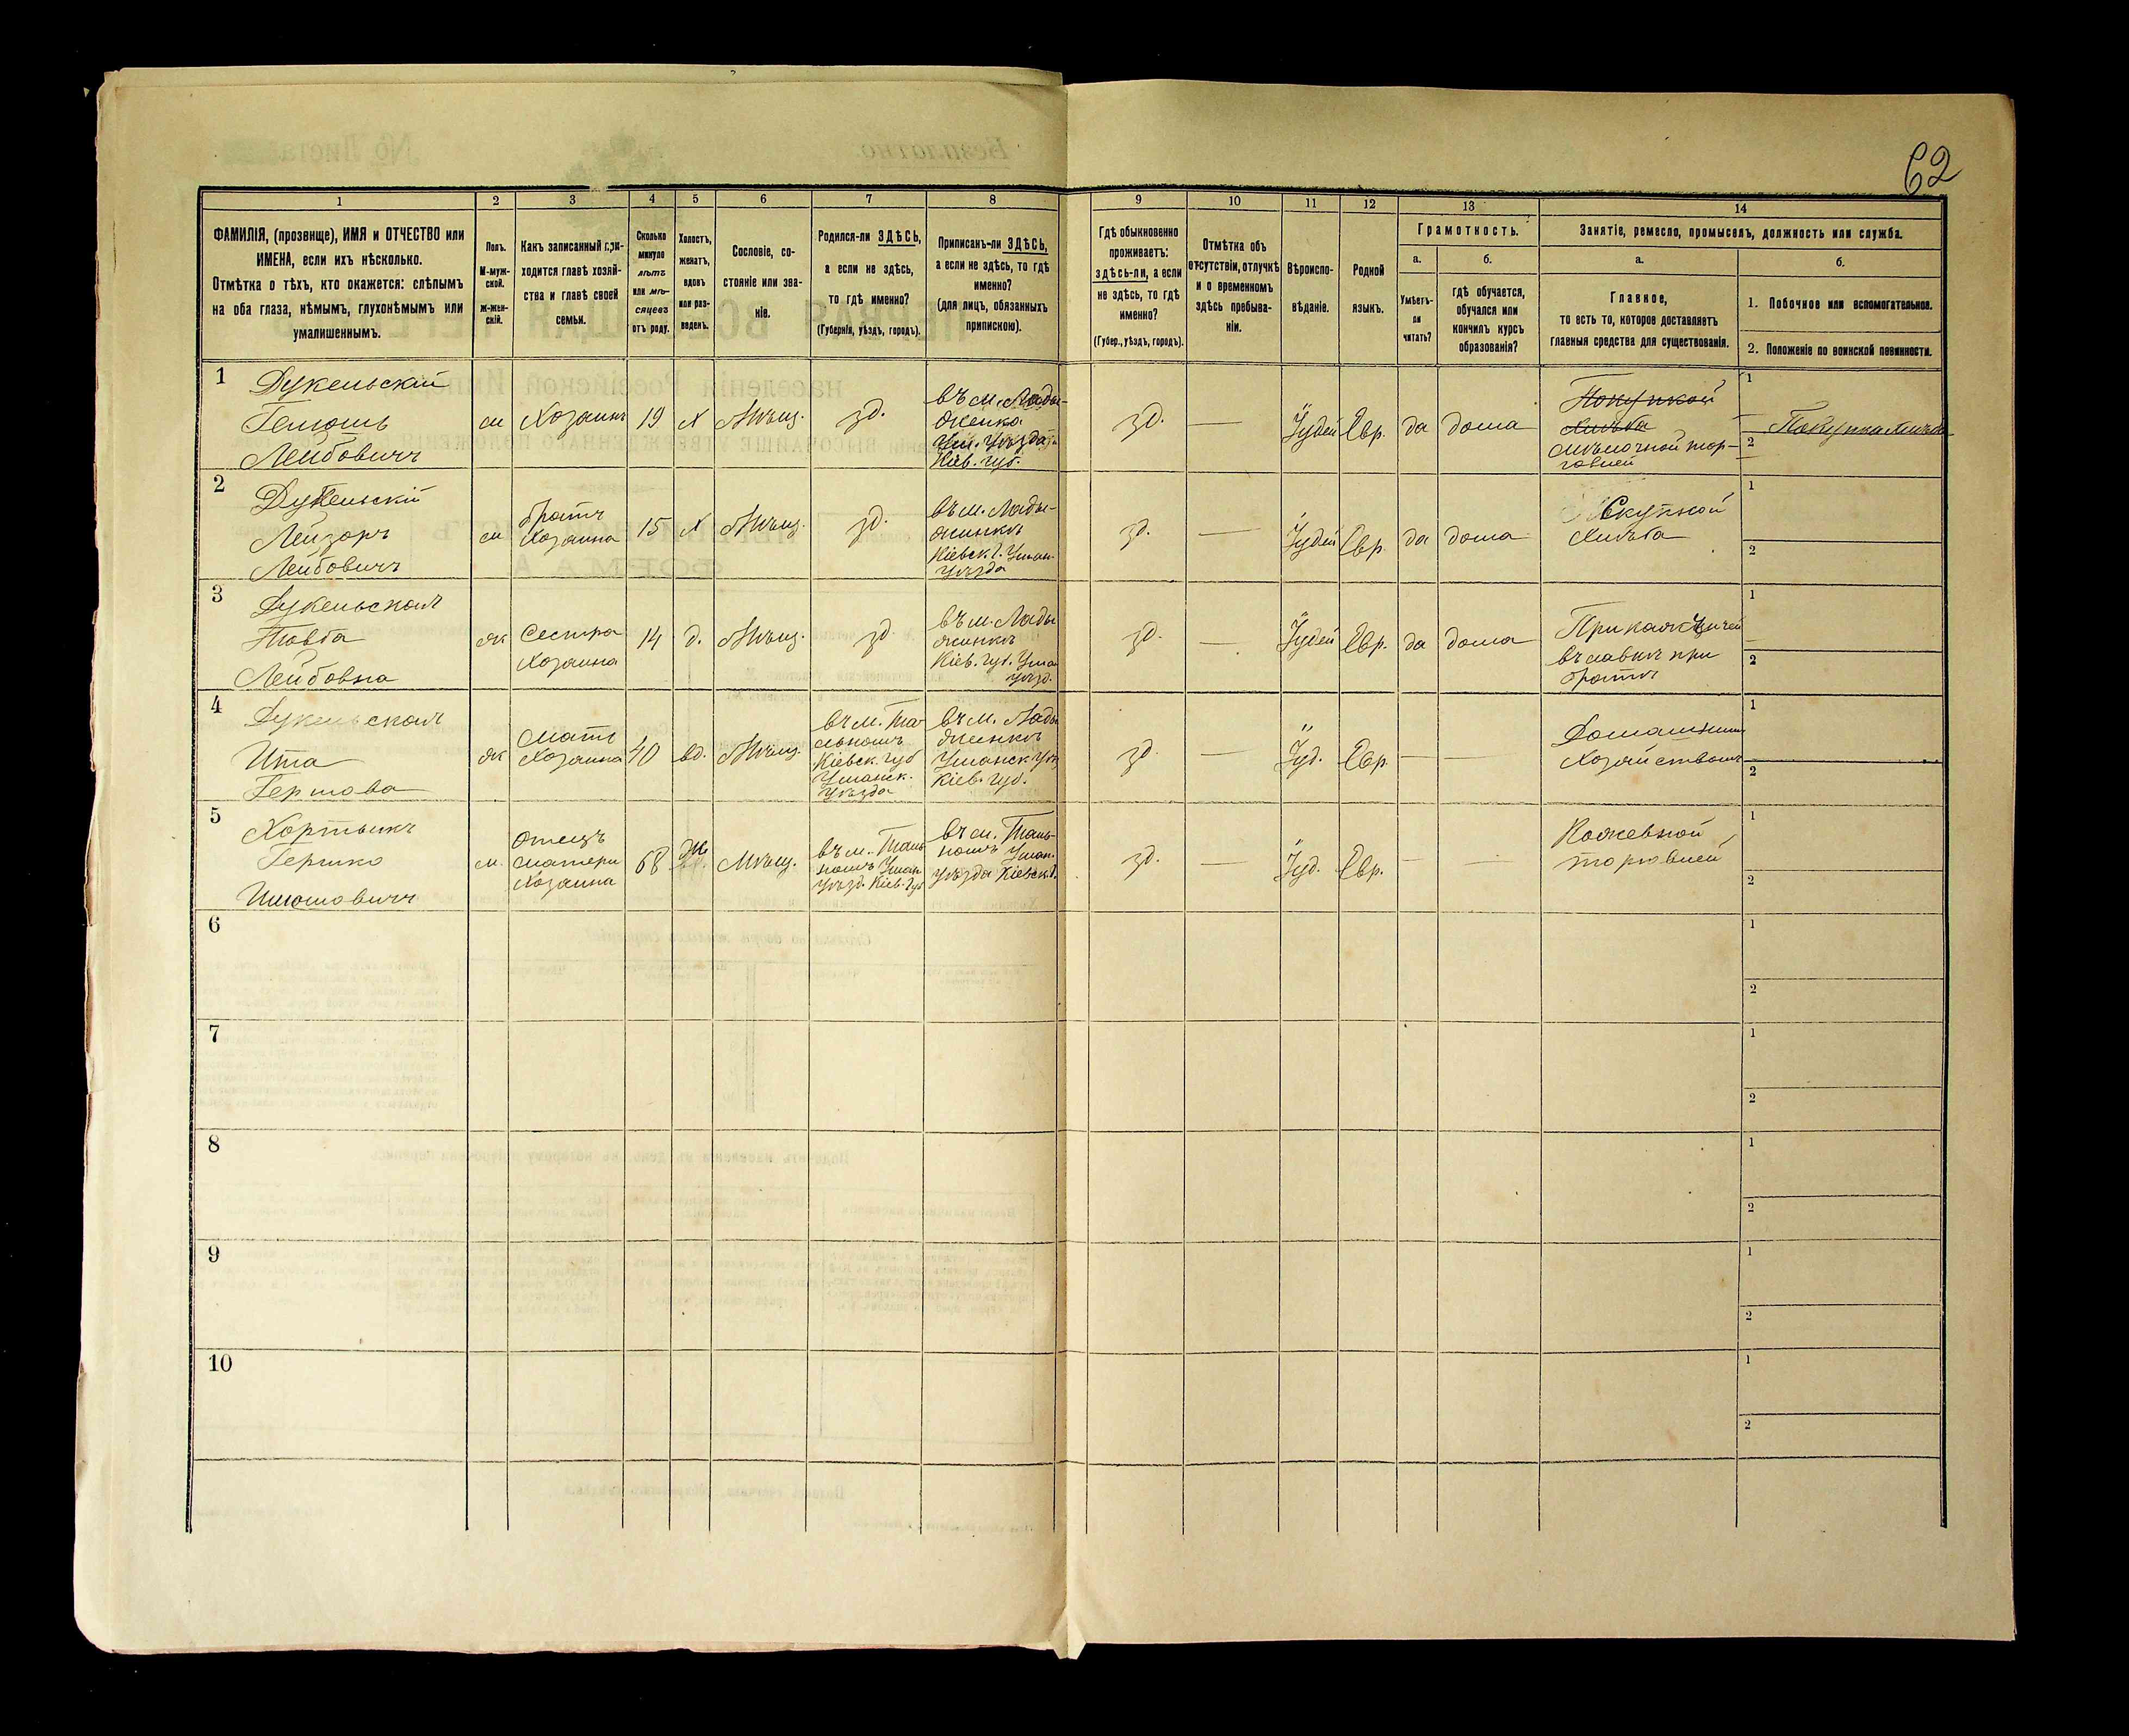 62
1
2
3
4
5
6
7
8
9
10
11
12
13
14
ФАМИЛІЯ, (прозвище), ИМЯ и ОТЧЕСТВО или
ИМЕНА, если ихъ нѣсколько.
Отмѣтка о тѣхъ, кто окажется: слѣпымъ
на оба глаза, нѣмымъ, глухонѣмымъ или
умалишеннымъ.
Полъ.
М-муж-
ской.
ж-жен-
скій.
Какъ записанный при-
ходится главѣ хозяй-
ства и главѣ своей
семьи.
Сколько
минуло
лѣтъ
или мѣ-
сяцевъ
отъ роду.
Холостъ,
женатъ,
вдовъ
или раз-
веденъ.
Сословіе, со-
стояніе или зва-
ніе.
Родился-ли ЗДѢСЬ,
а если не здѣсь,
то гдѣ именно?
(Губернія, уѣздъ, городъ).
Приписанъ-ли ЗДѢСЬ,
а если не здѣсь, то гдѣ
именно?
(для лицъ, обязанныхъ
припискою).
Гдѣ обыкновенно
проживаетъ:
здѣсь-ли, а если
не здѣсь, то гдѣ
именно?
(Губер., уѣздъ, городъ).
Отмѣтка объ
отсутствіи, отлучкѣ
и о временномъ
здѣсь пребыва-
ніи.
Вѣроиспо-
вѣданіе.
Родной
языкъ.
Грамотность.
а.
Умѣетъ-
ли
читать?
б.
гдѣ обучается,
обучался или
кончилъ курсъ
образованія?
Занятіе, ремесло, промыселъ, должность или служба.
а.
Главное,
то есть то, которое доставляетъ
главныя средства для существованія.
б.
1. Побочное или вспомогательное.
2. Положеніе по воинской повинности.
1
Дукельскій
Лейбовичъ
м
Хозяинъ
19
Х
Мѣщ.
зд.
въ м. Лады-
женкѣ
Ум. Уѣзда
Кіев. губ.
зд.
—
Іудей
Евр.
да
дома
Покупкой
хлѣба
мѣлочной тор-
говлей
1
Покупка хлѣба
2
2
Дукельскій
Лейзоръ
Лейбовичъ
м
братъ
Хозяина
15
Х
Мѣщ.
зд.
въ м. Лады-
женкѣ
Кіевск. г. Уман.
Уѣзда
зд.
—
Іудей
Евр.
да
дома
Скупкой
хлѣба
1
2
3
Дукельская
Товба
Лейбовна
ж
Сестра
Хозяина
14
д.
Мѣщ.
зд.
въ м. Лады
женкѣ
Кіев. губ. Ума
уѣзд.
зд.
—
Іудей
Евр.
да
дома
въ лавкѣ при
братѣ
1
2
4
Дукельская
Ита
Гершова
ж
Мать
Хозяина
40
вд.
Мѣщ.
въ м. Та
льномъ
Кіевск. губ
Уманск.
Уѣзда
въ м. Лады
женкѣ
Уманск. Уѣз
Кіев. губ.
зд.
—
Іуд.
Евр.
—
—
Домашнимъ
Хозяйствомъ
1
2
5
Гершко
м.
Отецъ
матери
Хозяина
68
Мѣщ.
въ м. Таль
номъ Уман.
уѣзд. Кіев. губ
въ м. Таль-
номъ Уман.
уѣзда Кіевск. г.
зд.
—
Іуд.
Евр.
—
—
Кожевной
торговлей
1
2
6
1
2
7
1
2
8
1
2
9
1
2
10
1
2